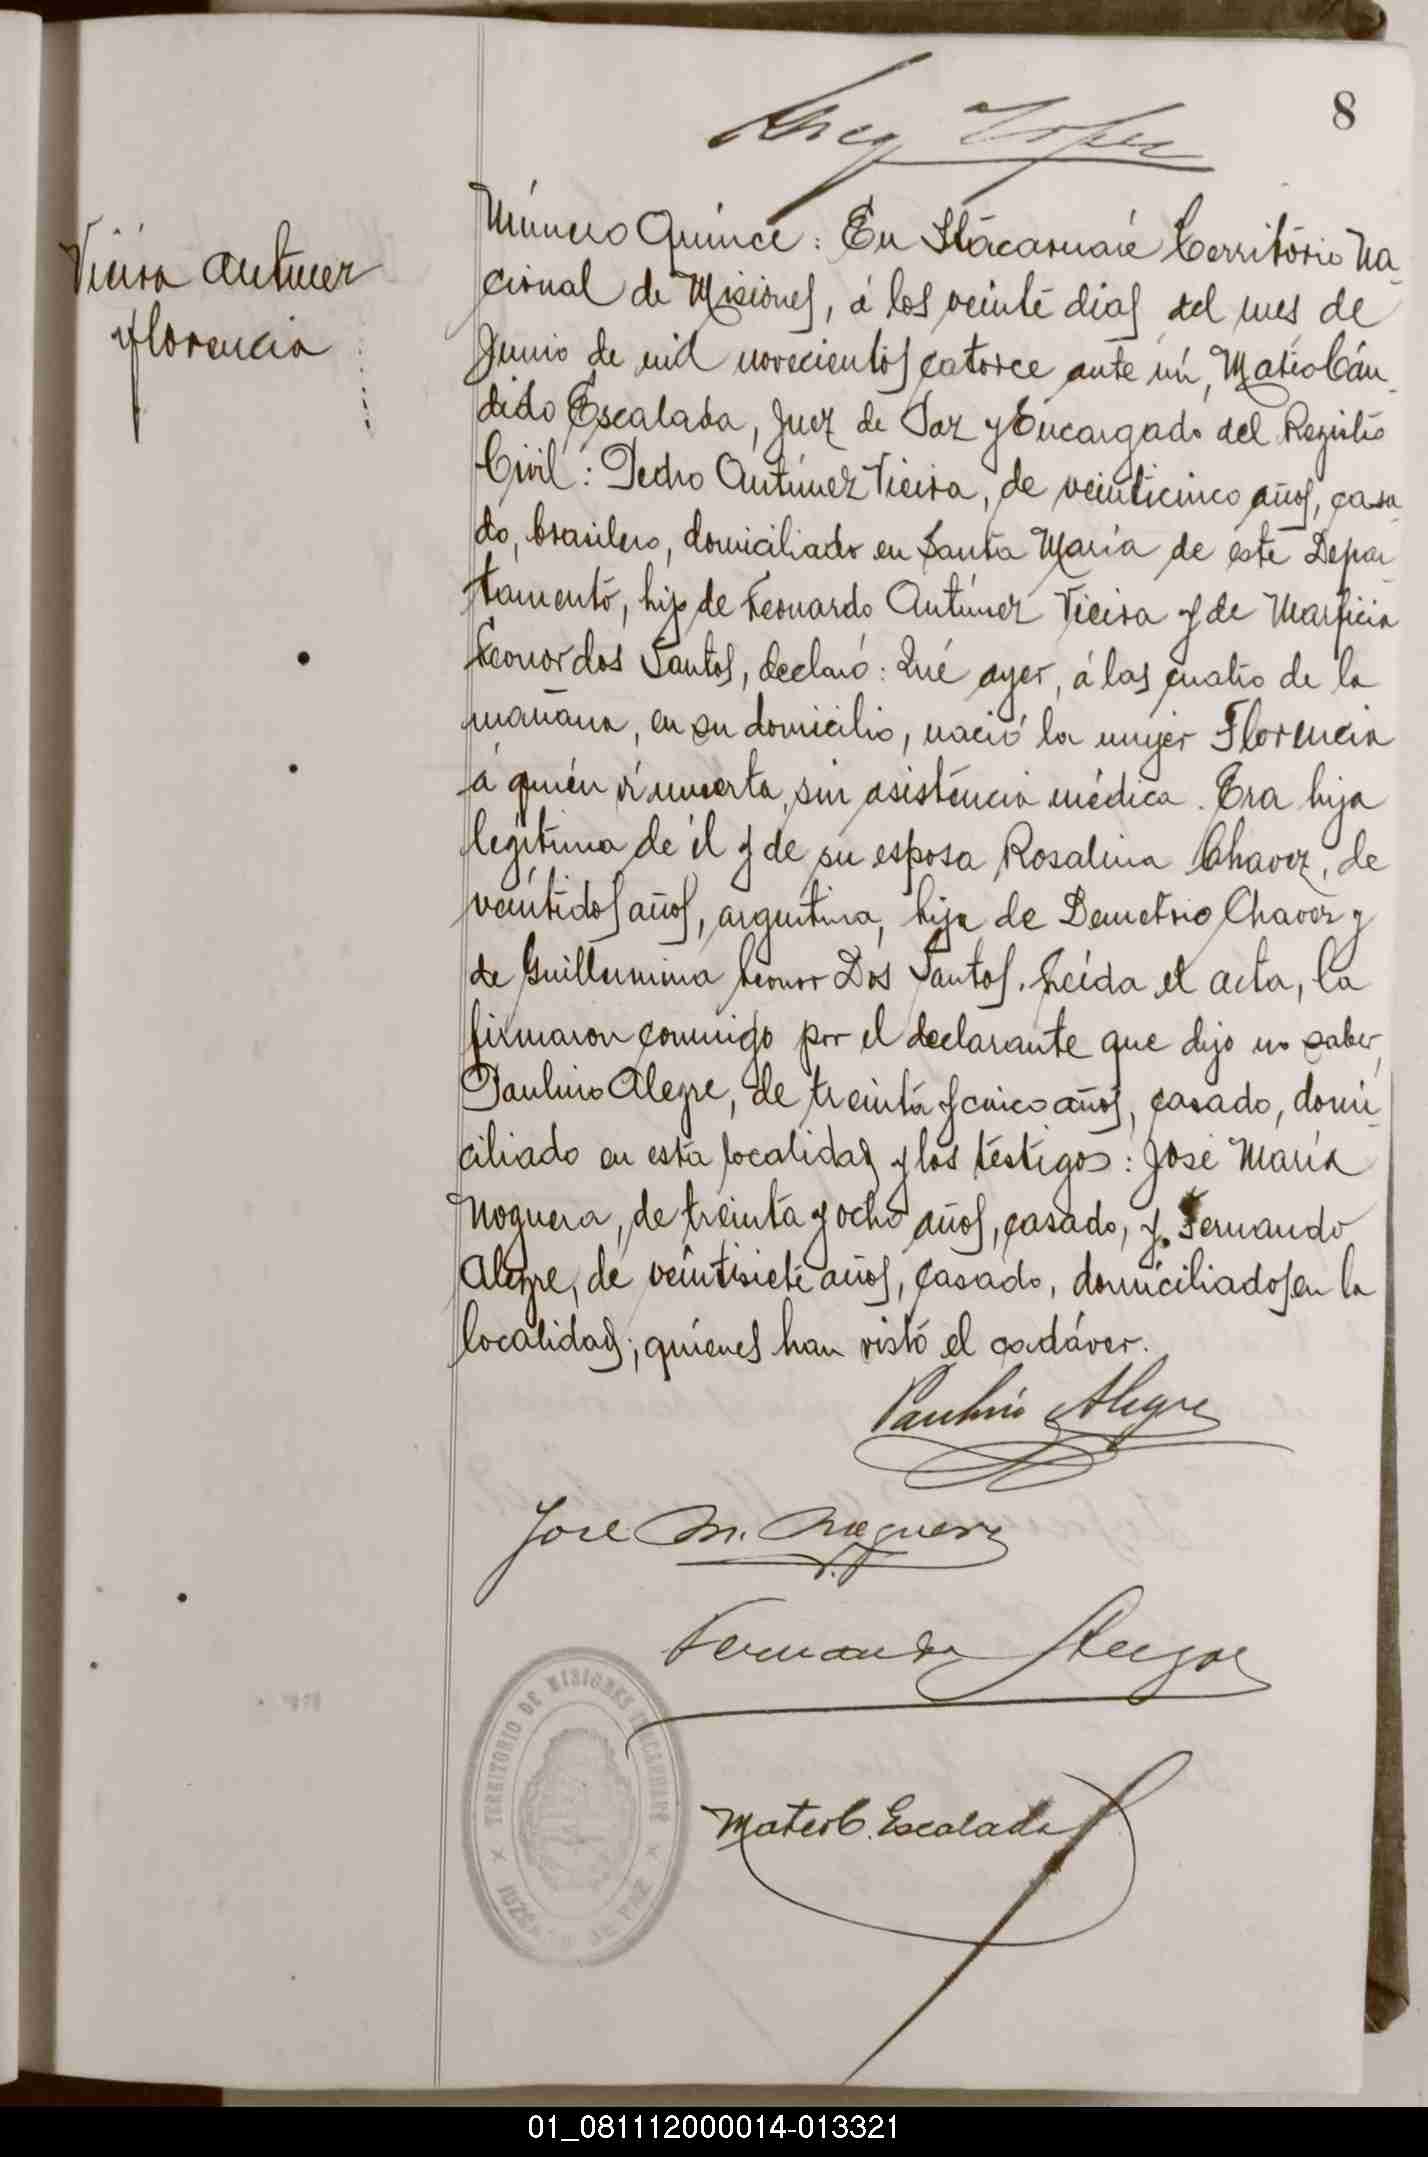 8
Vieira Antunez
Florencia
Número Quince: En Itacaruaré Território Na-
cional de Misiones, á los veinte dias del mes de
Junio de mil novecientos catorce ante mí, Mateo Cán-
dido Escalada, Juez de Paz y Encargado del Registro
Civil: Pedro Antúnez Vieira, de veinticinco años, casa-
do, brasilero, domiciliado en Santa María de este Depar-
tamento, hijo de Leonardo Antúnez Vieira y de
Leonor dos Santos, declaró: Qué ayer, á las cuatro de la
mañana, en su domicilio, nació la mujer Florencia
á quién ví muerta, sin asisténcia médica. Era hija
legítima de él y de su esposa Rosalina Chavez, de
veintidos años, argentina, hija de Demetrio Chavez y
de Guillermina Leonor Dos Santos. Leída el acta, la
firmaron conmigo por el declarante que dijo no saber,
Paulino Alegre, de treinta y cinco años, casado, domi-
ciliado en esta localidad y los téstigos: José María
Noguera, de treinta y ocho años, casado, y Fernando
Alegre, de veintisiete años, casado, domiciliados en la
localidad; quiénes han visto el cadáver.
Paulino Alegre
Jose M. Noguera
Fernando Alegre
TERRITORIO DE MISIONES ITACARUARÉ
JUZGADO DE PAZ
Mateo C. Escalada
01_081112000014-013321